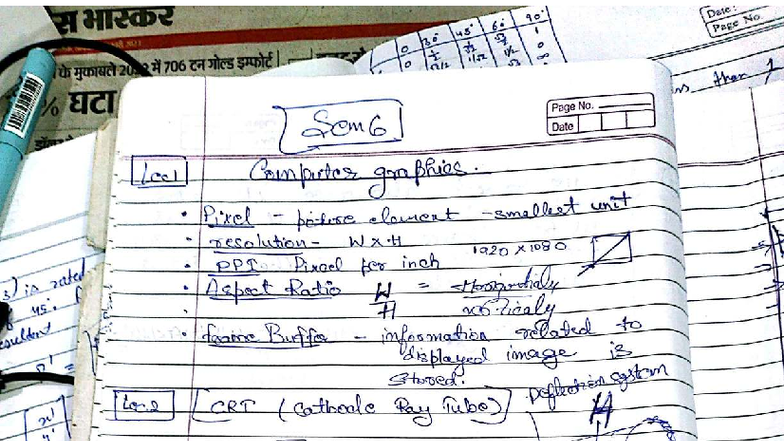 रा भास्कर
के मुकाबले 2022 में 706 टन गोल्ड इम्पोर्ट
% घटा
0 30 45 60 90
Date:
Page No.
than
Page No.
Date
Sem 6
Lec1 Computer graphics.
• Pixel - picture element - smallest unit
• resolution - W x H 1920 x 1080
• PPI Pixel per inch
• Aspect Ratio W/H = Horizontaly
verticaly
• frame Buffer - information related to
displayed image is
stored.
Lec2 [CRT (Cathode Ray Tube)] Deflection system
s) is rated
45°.